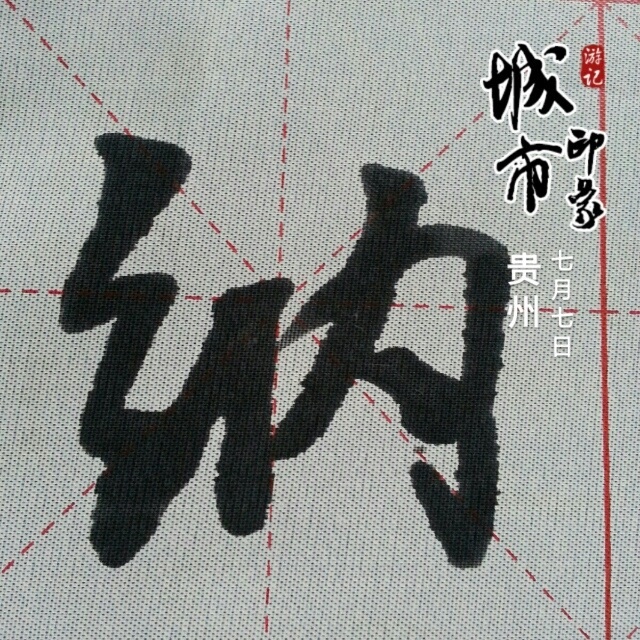 纳
城市
印象
游记
贵州
七月七日